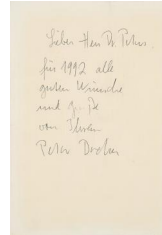 Lieber Herr Dr. Peters.
für 1992 alle
guten Wünsche
und
von Ihrem
Peter